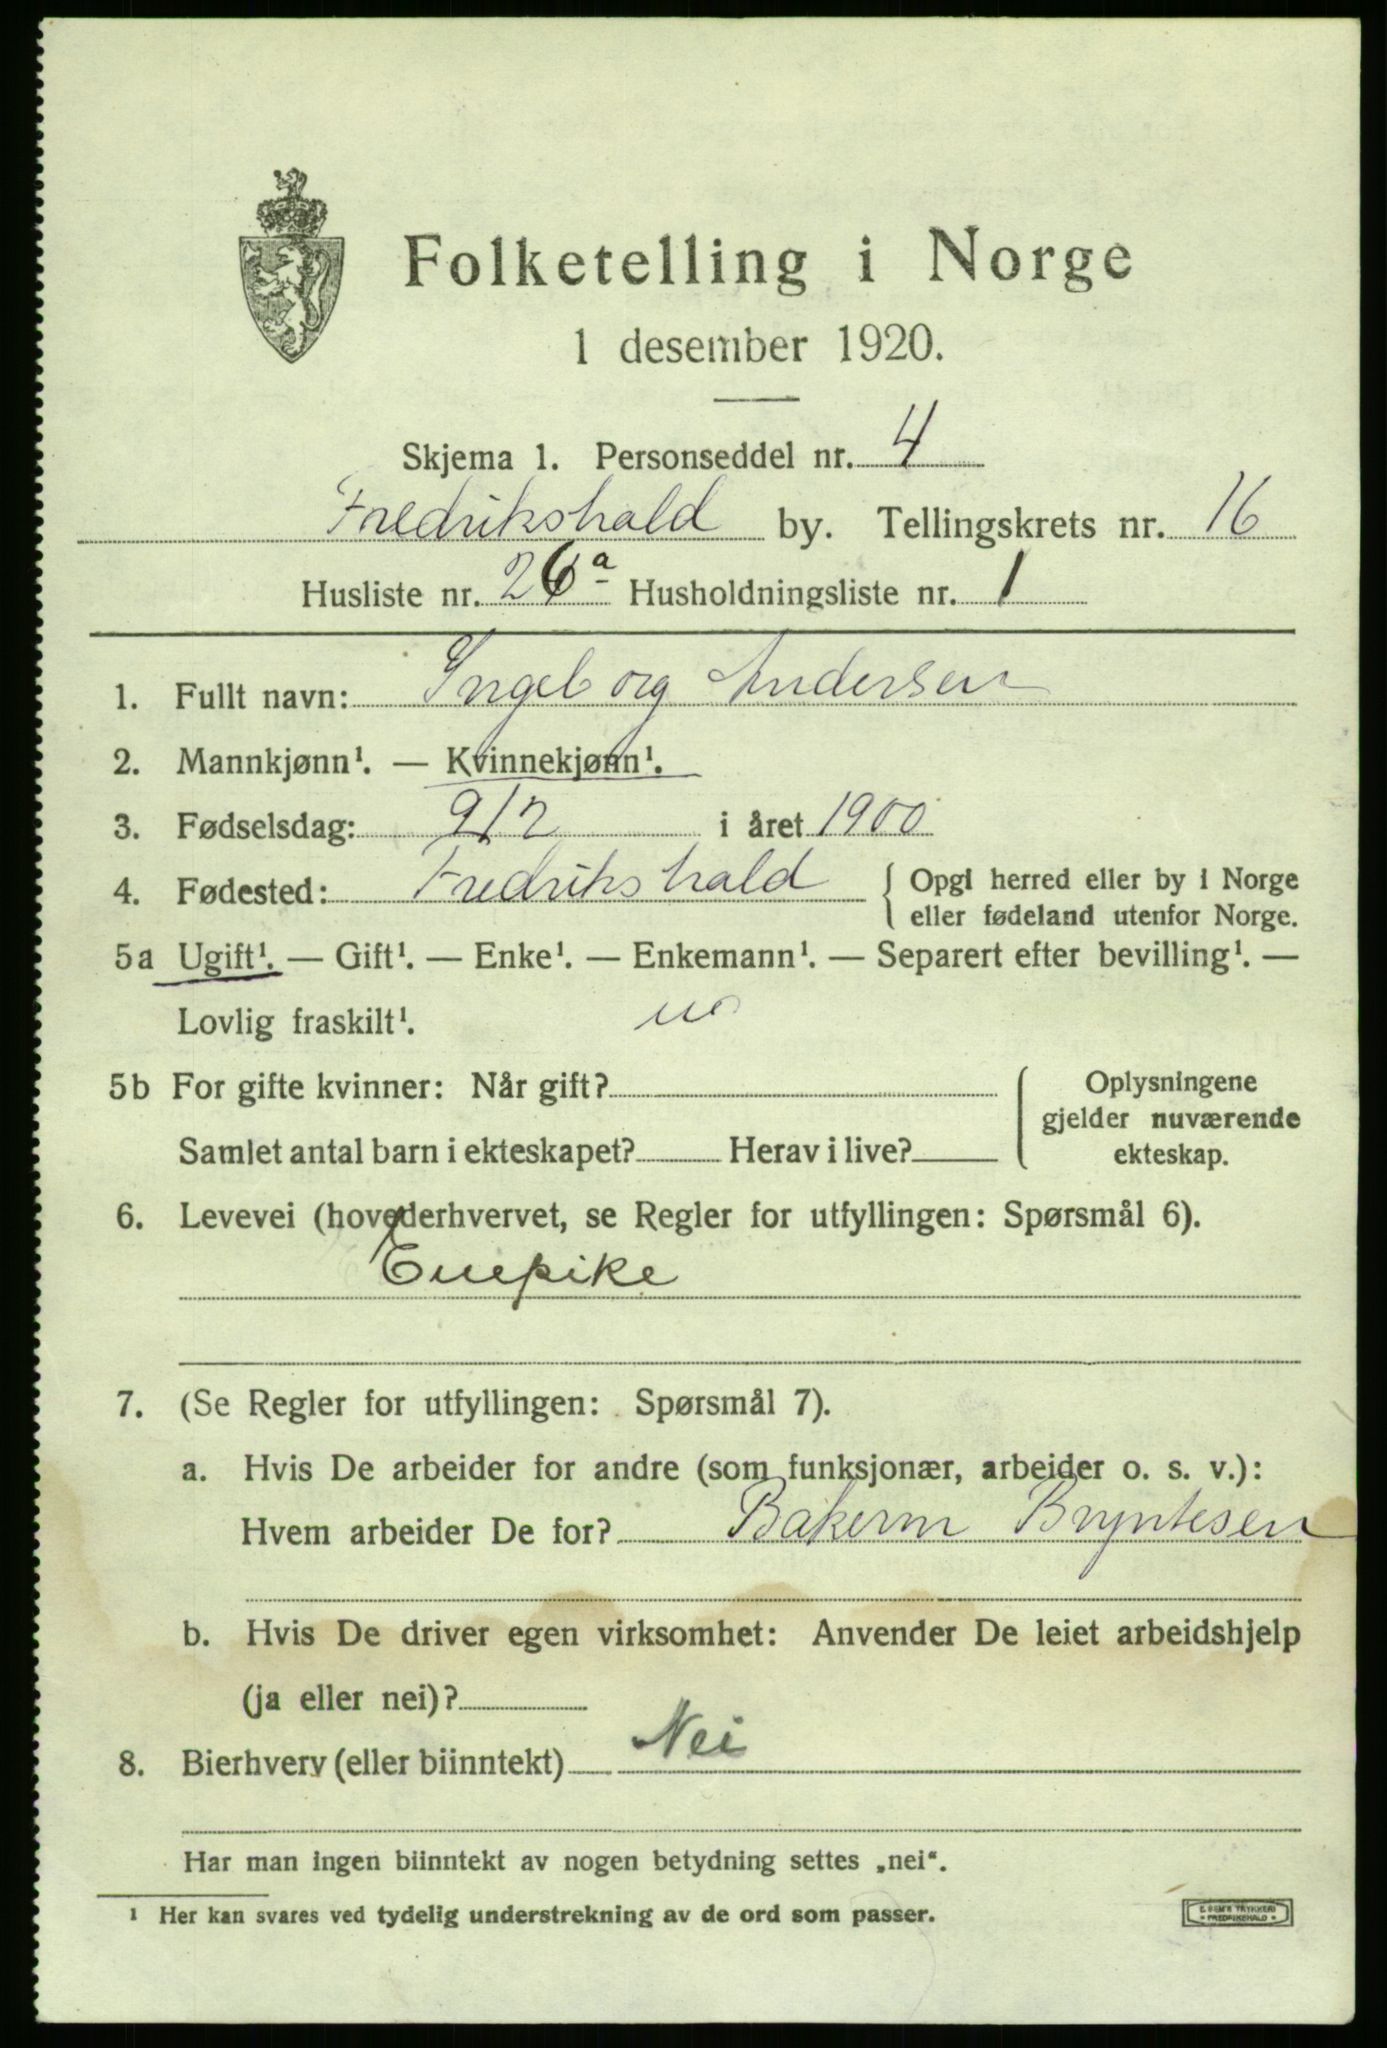 Folketelling i Norge
1 desember 1920.
Skjema 1. Personseddel nr. 4
Fredrikshald by. Tellingskrets nr. 16
Husliste nr. 26a Husholdningsliste nr. 1
1. Fullt navn: Ingeborg Andersen
2. Mannkjønn¹. — Kvinnekjønn¹.
3. Fødselsdag: 9/2 i året 1900
4. Fødested: Fredrikshald { Opgi herred eller by i Norge
eller fødeland utenfor Norge.
5a Ugift¹. — Gift¹. — Enke¹. — Enkemann¹. — Separert efter bevilling¹. —
Lovlig fraskilt¹.
5b For gifte kvinner: Når gift? Oplysningene
gjelder nuværende
Samlet antal barn i ekteskapet? Herav i live? ekteskap.
6. Levevei (hovederhvervet, se Regler for utfyllingen: Spørsmål 6).
Enepike
7. (Se Regler for utfyllingen: Spørsmål 7).
a. Hvis De arbeider for andre (som funksjonær, arbeider o. s. v.):
Hvem arbeider De for? Bakerm Bryntesen
b. Hvis De driver egen virksomhet: Anvender De leiet arbeidshjelp
(ja eller nei)?
8. Bierhverv (eller biinntekt) Nei
Har man ingen biinntekt av nogen betydning settes „nei“.
¹ Her kan svares ved tydelig understrekning av de ord som passer.
E. SEM'S TRYKKERI
FREDRIKSHALD